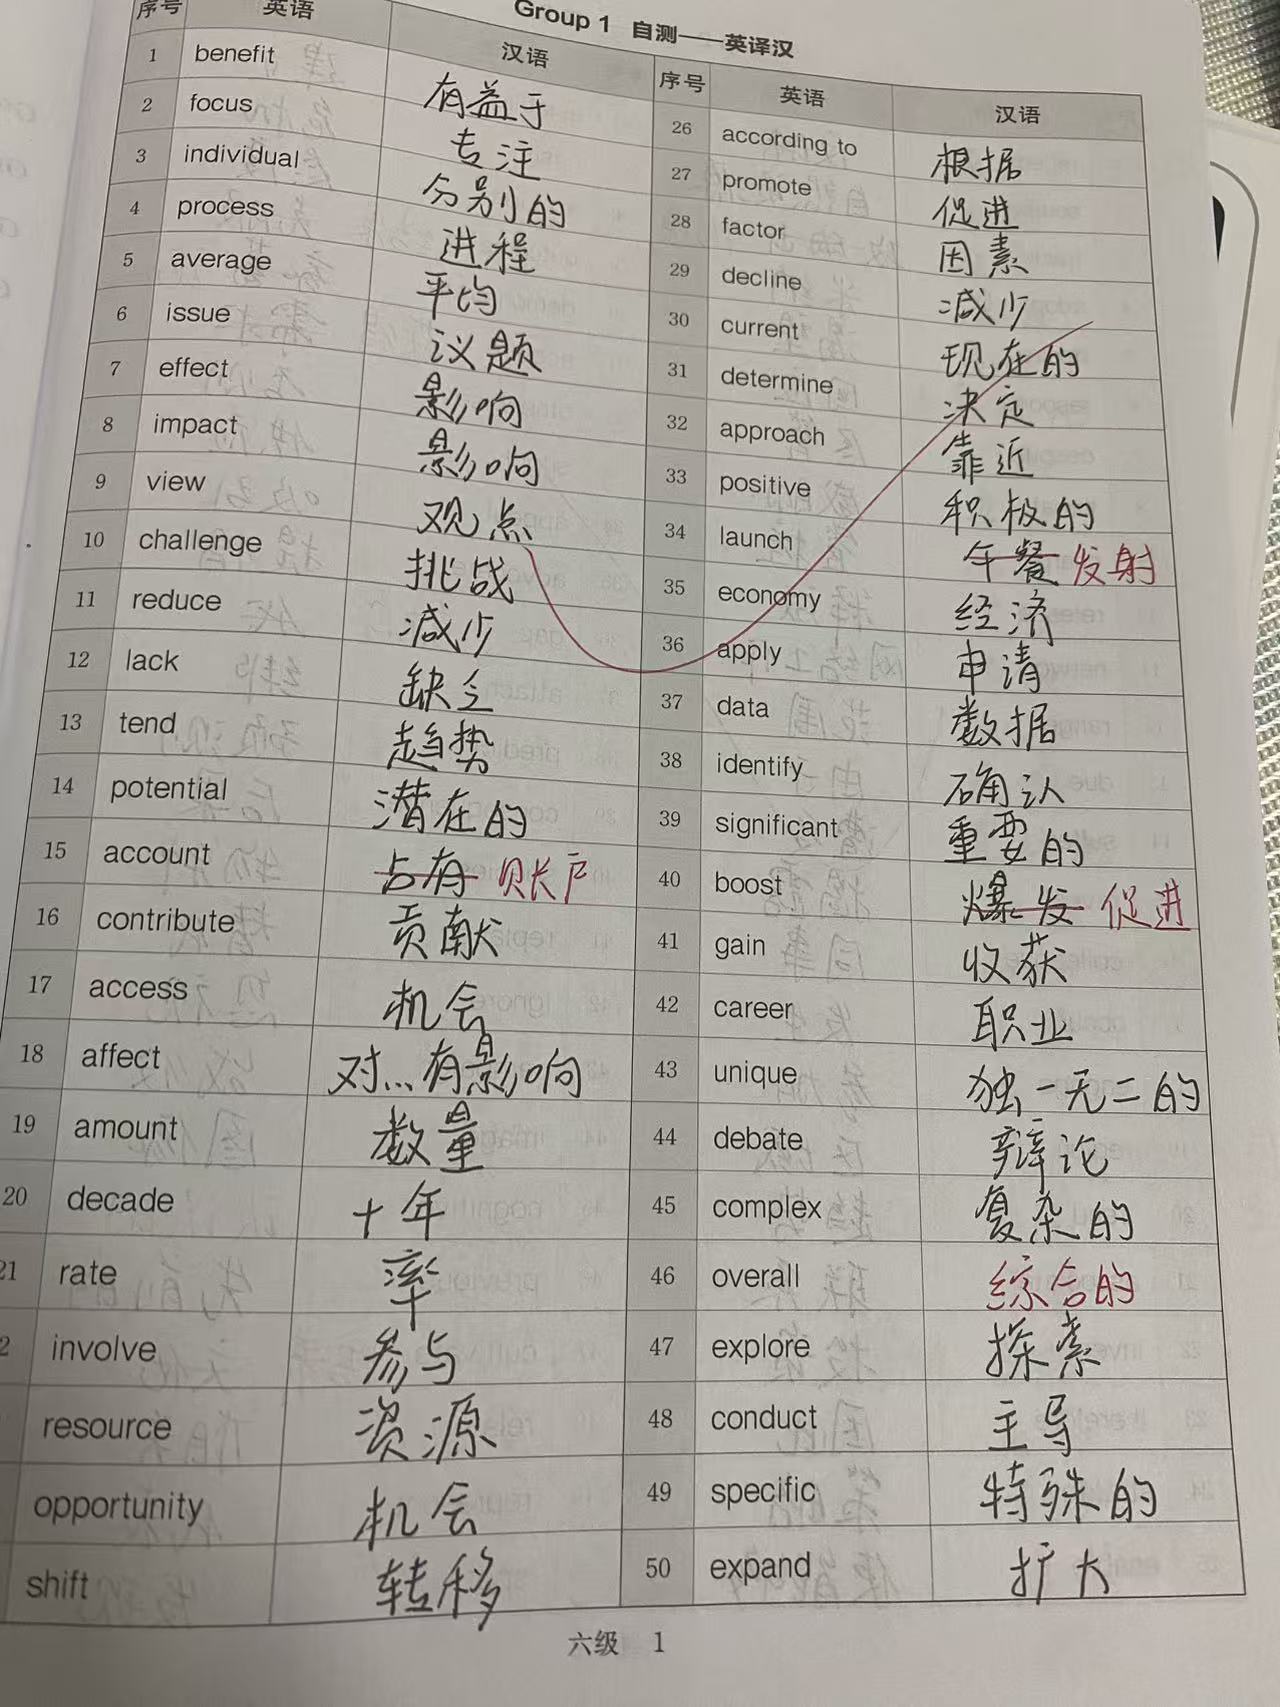 Group 1 自测——英译汉
序号 英语 汉语
1 benefit 有益于
2 focus 专注
3 individual 分别的
4 process 进程
5 average 平均
6 issue 议题
7 effect 影响
8 impact 影响
9 view 观点
10 challenge 挑战
11 reduce 减少
12 lack 缺乏
13 tend 趋势
14 potential 潜在的
15 account 占有 账户
16 contribute 贡献
17 access 机会
18 affect 对...有影响
19 amount 数量
20 decade 十年
21 rate 率
2 involve 参与
resource 资源
opportunity 机会
shift 转移
序号 英语 汉语
26 according to 根据
27 promote 促进
28 factor 因素
29 decline 减少
30 current 现在的
31 determine 决定
32 approach 靠近
33 positive 积极的
34 launch 午餐 发射
35 economy 经济
36 apply 申请
37 data 数据
38 identify 确认
39 significant 重要的
40 boost 爆发 促进
41 gain 收获
42 career 职业
43 unique 独一无二的
44 debate 辩论
45 complex 复杂的
46 overall 综合的
47 explore 探索
48 conduct 主导
49 specific 特殊的
50 expand 扩大
六级 1